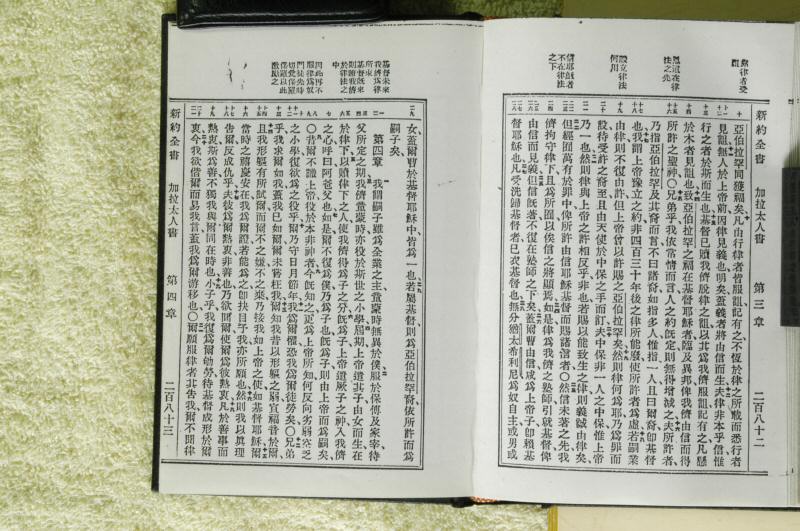 無律者受詛
恩追在律法之先
設立律法何用
信耶穌者不在律法之下
新約全書 加拉太人書 第三章 二百八十二
亞伯拉罕同獲福矣凡由行律者皆服詛記有之不恆於律之所載而悉行者
見詛無人於上帝前因律見義也明矣蓋義者將由信而生夫律非本乎信惟
行之者於斯而生也基督已贖我儕脫律之詛以其為我儕服詛記有之凡懸
於木者見詛也致亞伯拉罕之福在基督耶穌者臨及異邦俾我儕由信而得
所許之聖神○兄弟乎我依常情而言人之約既定則無得增減之夫所許者
乃指亞伯拉罕及其裔而言不曰諸裔如指多人惟指一人且曰爾裔卽基督
也我謂上帝豫立之約非四百三十年後之律所能廢使所許者為虛若嗣業
由律則不復由許但上帝曾以許賜之亞伯拉罕矣然則律何為耶乃為罪而
設待受許之裔至且由天使於中保之手而訂夫中保非一人之中保惟上帝
乃一也然則律與上帝之許相反乎非也若賜以能致生之律則義誠由律矣
但經囿萬有於罪中俾所許由信耶穌基督而賜諸信者○然信未著之先我
儕拘守律下且為所囿以俟信之將顯焉如是律為我儕之塾師引就基督俾
由信而見義但信既著不復在塾師之下矣蓋爾曹由信成為上帝子卽賴基
督耶穌也凡受洗歸基督者已衣基督也無分猶太希利尼為奴自主或男或
基督未來我儕為律所束
基督既來則贖我儕於律法之中
因此再不服律為奴
新約全書 加拉太人書 第四章 二百八十三
女蓋爾曹於基督耶穌中皆為一也若屬基督則為亞伯拉罕裔依所許而為
嗣子矣
第四章 我謂嗣子雖為全業之主童蒙時無異於僕服於保傅及家宰待
父所定之期我儕童蒙時亦役於斯世之小學屆期上帝遣其子由女而生在
於律下以贖律下之人使我儕得為子之分既為子上帝遣厥子之神入我儕
之心呼曰阿爸父也如是爾不復為僕乃為子也既為子則由上帝而為嗣矣
○昔爾不識上帝役於本非神者今既知之更為上帝所知何反向劣弱空乏
之小學復欲為之役乎爾乃守日月節年我為爾懼恐我為爾徒勞矣○兄弟
乎我求爾如我蓋我已如爾爾未嘗枉我爾知我昔以形軀之弱宣福音於爾
且我形軀有所試爾而爾不之嫌不之棄乃接我如上帝之使如基督耶穌
當時之禧慶安在我為爾證若能為之卽抉目予我亦所願也然則我以眞理
告爾反成仇乎夫彼為爾熱衷非善也乃欲閒爾使爾為彼熱衷凡於善事而
熱衷素為善不獨我與爾同在時也小子乎我復為爾劬勞待基督成形於爾
衷今我欲偕爾而易我言蓋我為爾游移也○爾願服律者其吿我爾不聞律